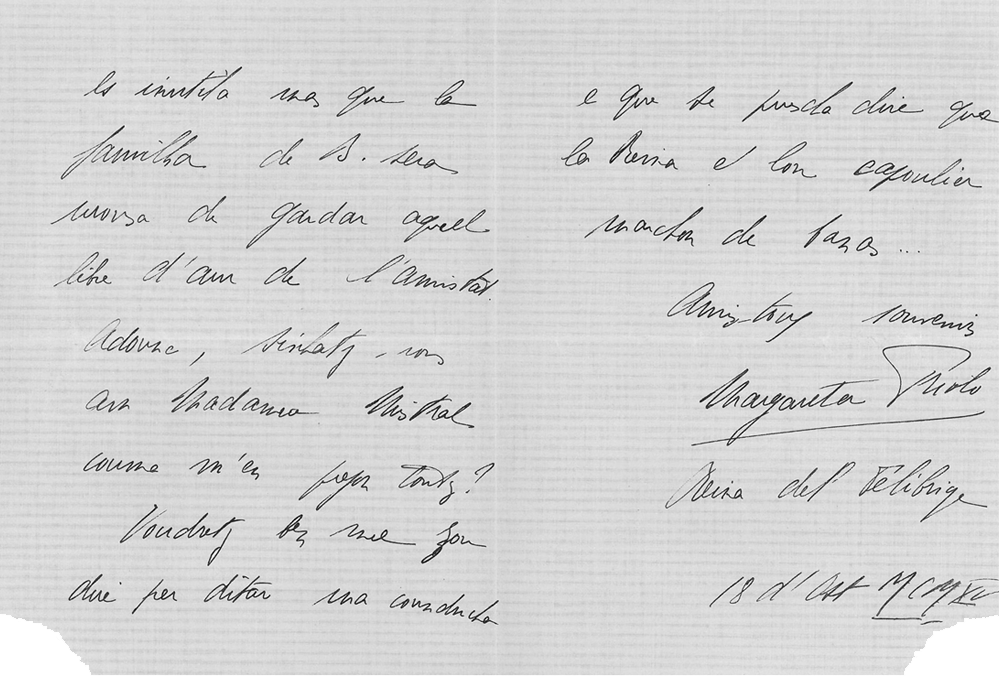 Es inutila mas que la
familha de B. sera
urousa de gardar aquel
libre d'aur de l'amistat.
Adounc, sentetz-vous
am Madama Mistral
couma m'en toutz?
Voudretz ben me zou
dire per ditar una counducta
e que se puscla dire que
la Reina e lou capoulier
marchon de ...
Amistous souvenir
Margareta Priolo
Reina del Félibrige
18 d'Ost MCMXV